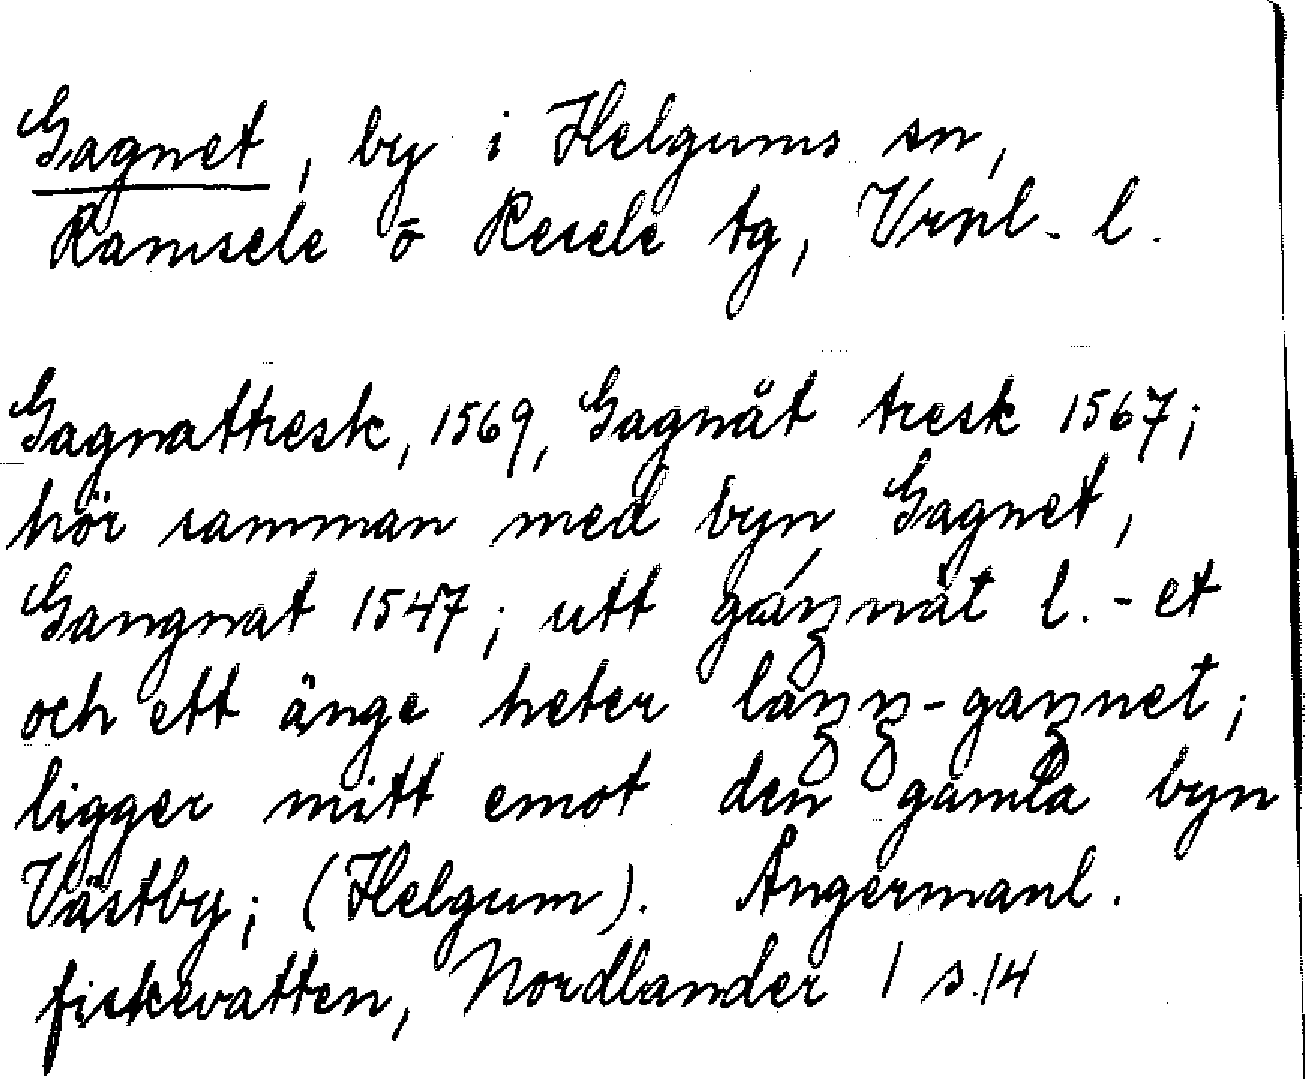 Gagnet, by i Helgums sn,
Ramsele o Resele tg, Vrnl. l.
Gagnattresk, 1569, Gagnåt tresk 1567;
hör samman med byn Gagnet,
Gangnat 1547; utt gáŋnåt l. -et
och ett änge heter låŋŋ-gaŋnet;
ligger mitt emot den gamla byn
Västby; (Helgum). Ångermanl.
fiskevatten, Nordlander 1 s. 14